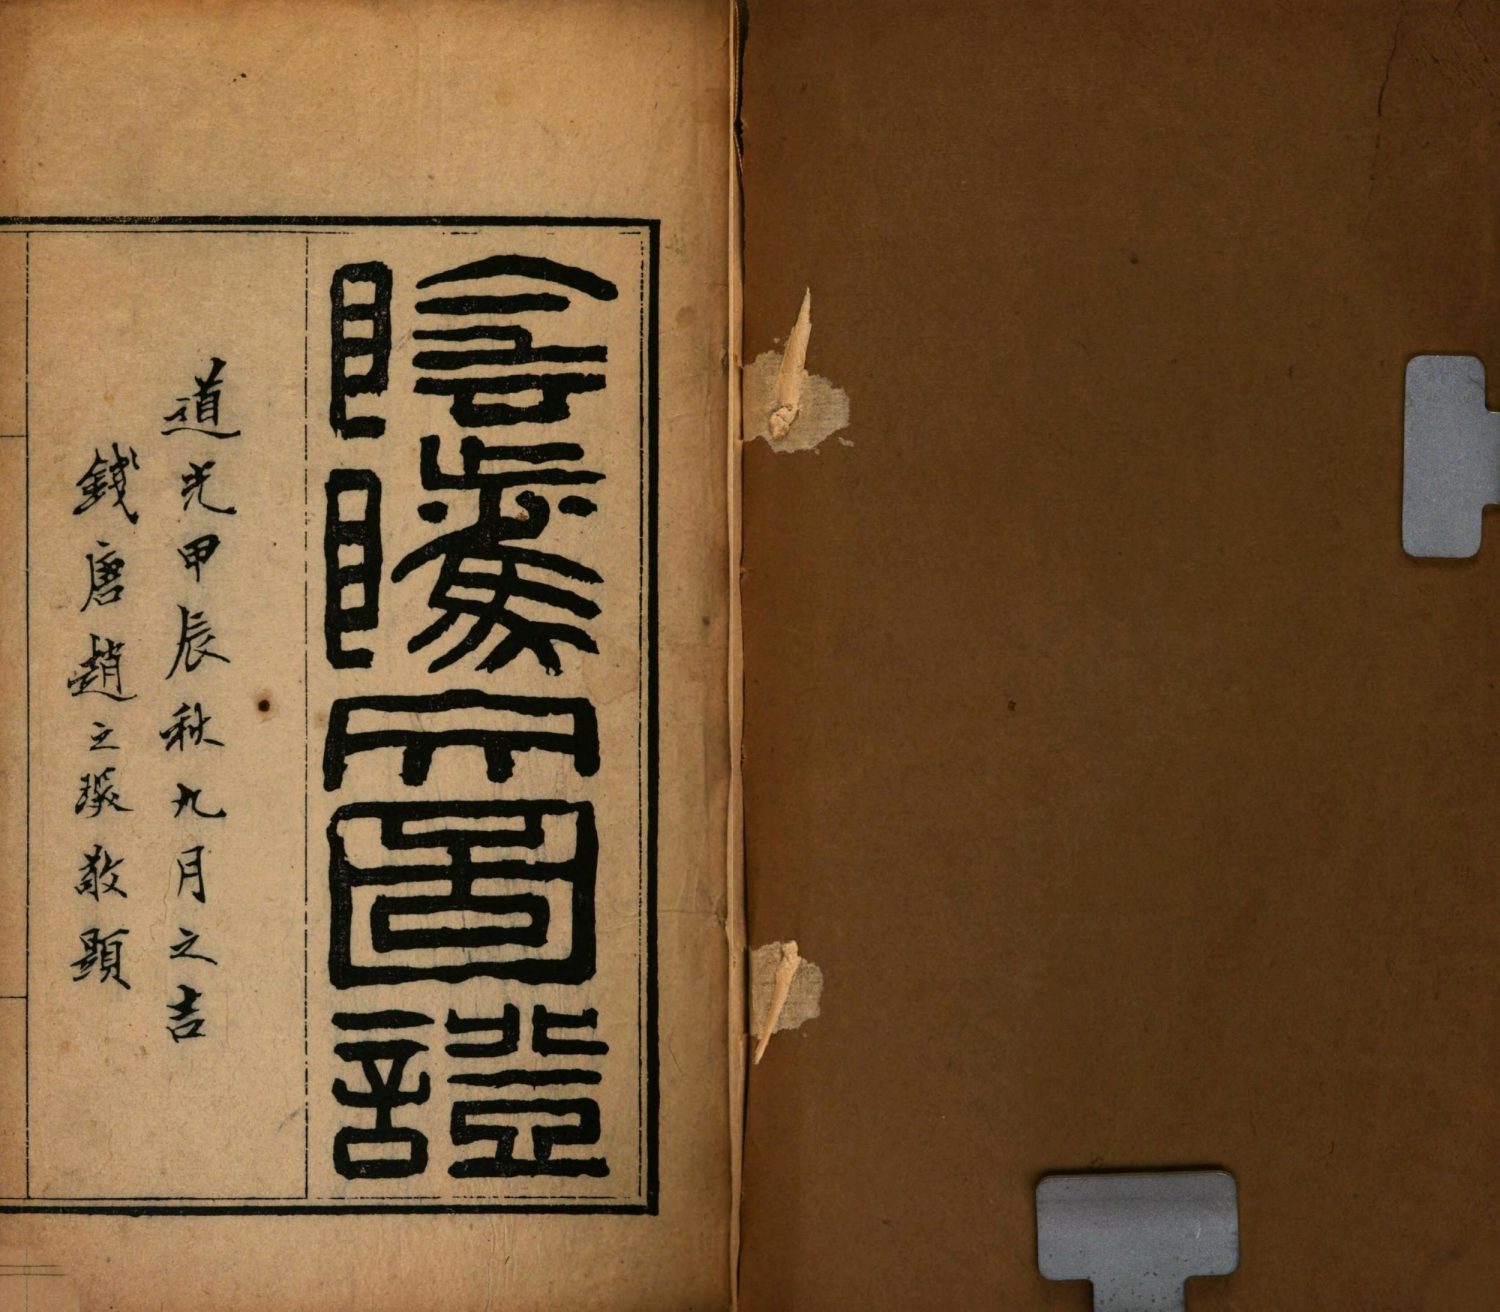 陰騭文圖證
道光甲辰秋九月之吉
錢唐趙之琛敬題